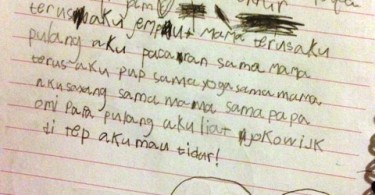 terus aku jemput mama terus aku
pulang aku pacaran sama mama
terus aku pup sama yoga sama mama
aku sayang sama mama sama papa
omi papa pulang aku liat jokowi JK
di tep aku mau tidur!